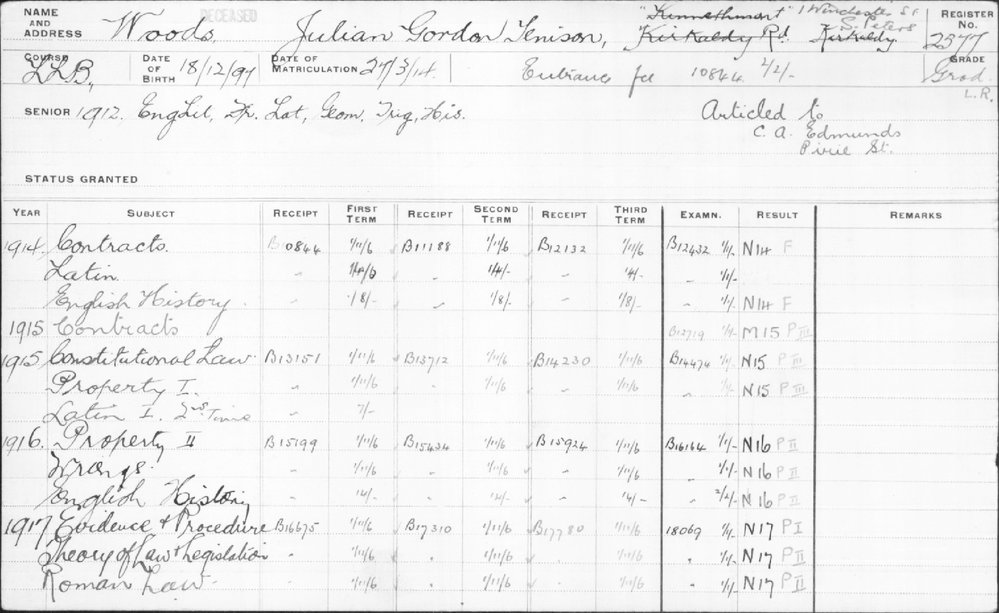 DECEASED
NAME AND ADDRESS Woods, Julian Gordon Tenison, "Kennethmont" 1 Winchester St. St. Peters
Kirkaldy Rd Kirkaldy
REGISTER No. 2377
COURSE LL.B., DATE OF BIRTH 18/12/97 DATE OF MATRICULATION 27/3/14. Entrance fee 10844 2/2/- GRADE Grad.
L.R.
SENIOR 1912. Eng Lit, Fr. Lat, Geom, Trig, His. Articled to
C. A. Edmunds
Pirie St.
STATUS GRANTED
YEAR SUBJECT RECEIPT FIRST TERM RECEIPT SECOND TERM RECEIPT THIRD TERM EXAMN. RESULT REMARKS
1914 Contracts. B10844 1/11/6 B11188 1/11/6 B12132 1/11/6 B12432 1/1/- N14 F
Latin. " " 1/4/- " 1/4/- " 1/1/-
English History. " 1/8/- " 1/8/- " 1/8/- " N14 F
1915 Contracts B12719 1/1/- M15 P III
1915 Constitutional Law. B13151 1/11/6 B13712 1/11/6 B14230 1/11/6 B14474 1/1/- N15 P III
Property I. " 1/11/6 " 1/11/6 " 1/11/6 " 1/1/- N15 P III
Latin I. 2nd Time " 7/-
1916. Property II B15199 1/11/6 B15434 1/11/6 B15924 1/11/6 B16164 1/1/- N16 P II
Wrongs. " 1/11/6 " 1/11/6 " 1/11/6 " 1/1/- N16 P II
English History " 14/- " 14/- " 14/- " 2/2/- N16 P II
1917 Evidence & Procedure B16675 1/11/6 B17310 1/11/6 B17780 1/11/6 18069 1/1/- N17 P I
Theory of Law & Legislation " 1/11/6 " 1/11/6 " 1/11/6 " 1/1/- N17 P II
Roman Law. " 1/11/6 " 1/11/6 " 1/11/6 " 1/1/- N17 P II